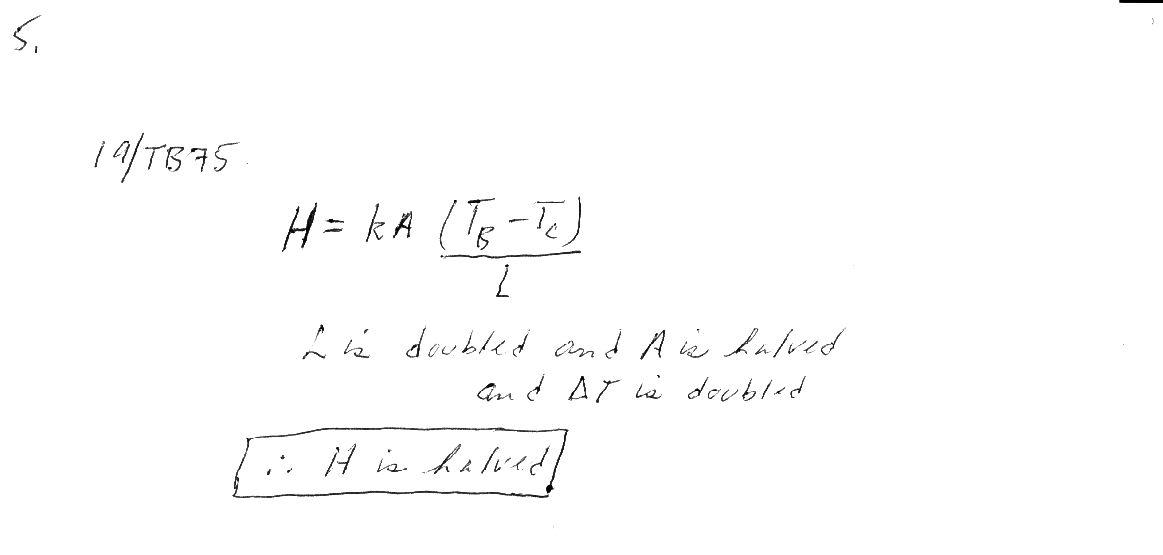 5.
19/TB75
H = kA (T_B - T_C)
L
L is doubled and A is halved
and ΔT is doubled
∴ H is halved